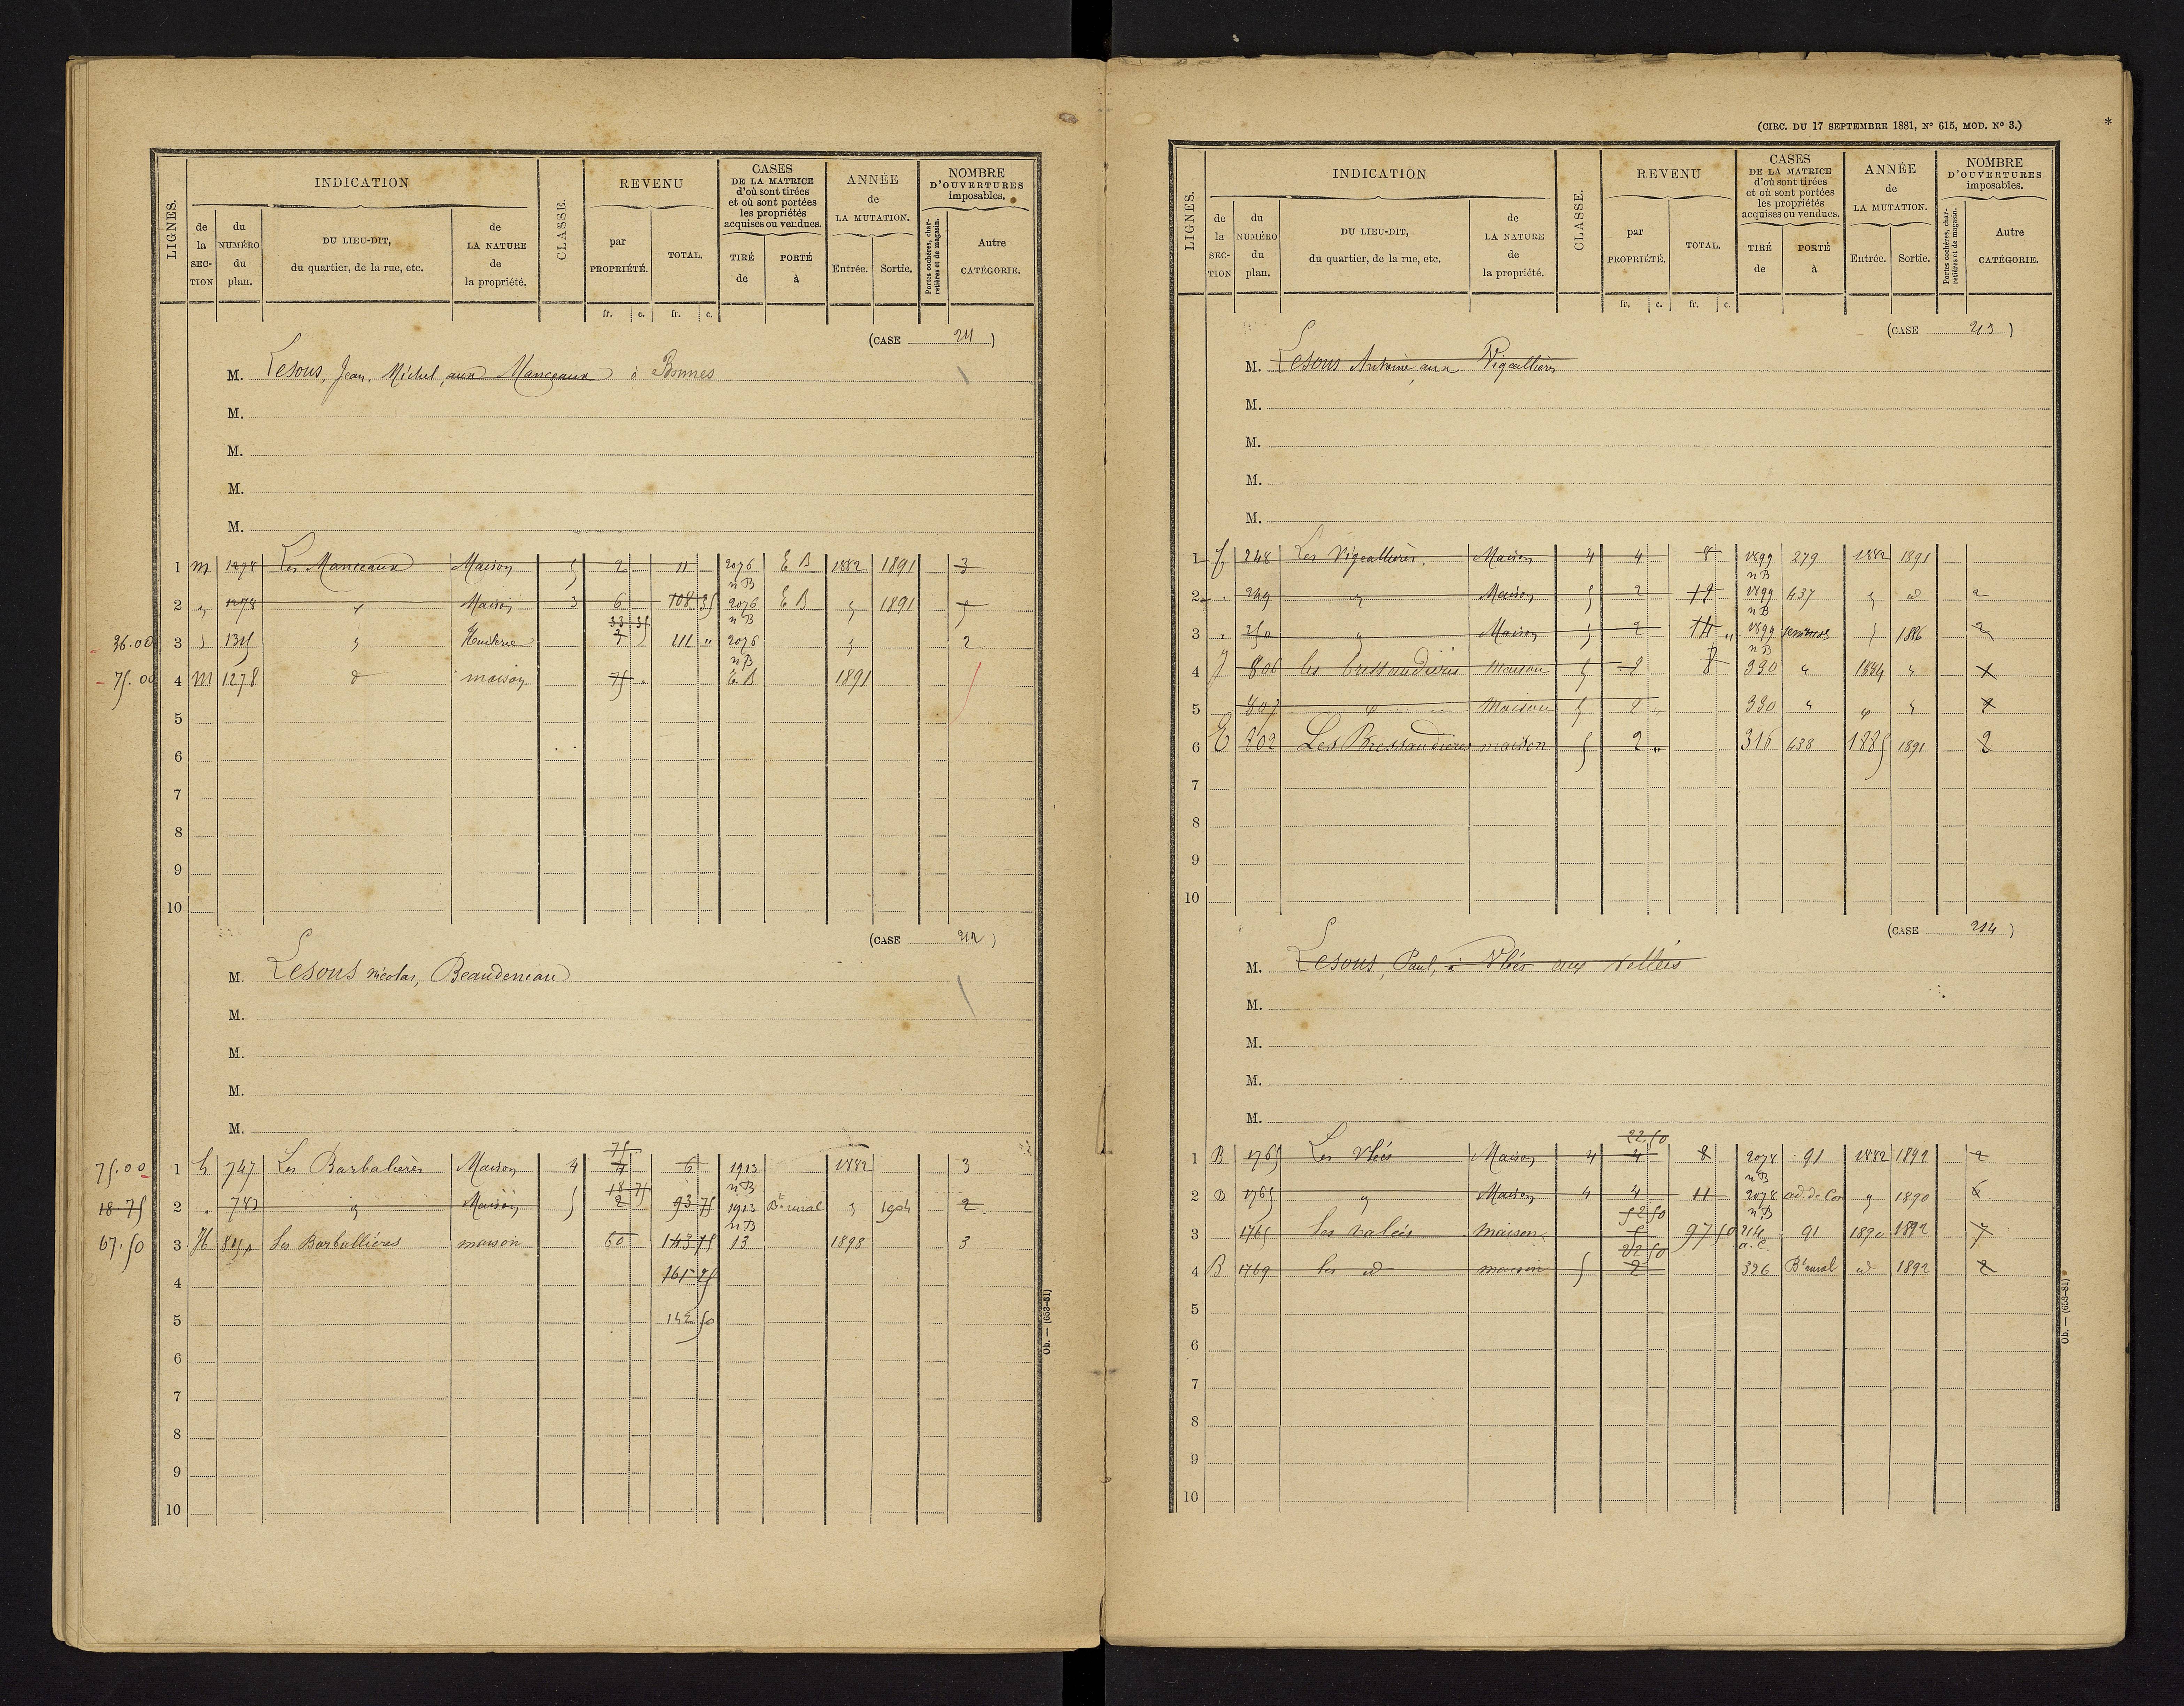 LIGNES.
INDICATION
de la SECTION
du NUMÉRO du plan.
DU LIEU-DIT, du quartier, de la rue, etc.
de LA NATURE de la propriété.
CLASSE.
REVENU
par PROPRIÉTÉ.
TOTAL.
CASES DE LA MATRICE d'où sont tirées et où sont portées les propriétés acquises ou vendues.
TIRÉ de
PORTÉ à
ANNÉE de LA MUTATION.
Entrée.
Sortie.
NOMBRE D'OUVERTURES imposables.
Portes cochères, charretières et de magasin.
Autre CATÉGORIE.
fr. c. fr. c.
(CASE 211)
M. Lesous, Jean, Michel, aux Manceaux à Bonnes
M.
M.
M.
M.
1 m 1278 Les Manceaux Maison 5 2 11 2076 E B 1882 1891 3
n B
2 " 1278 " Maison 3 6 108 35 2076 E B " 1891
33 35 n B
36.00 3 " 1315 " Huilerie 7 111 " 2076 " 2
n B
75.00 4 M 1278 d maison 75 . E. B 1891
5
6
7
8
9
10
(CASE 212)
M. Lesous Nicolas, Beaudeniau
M.
M.
M.
M.
75
75.00 1 h 747 Les Barbalières Maison 4 4 6 1913 1882 3
18 75 n B
18.75 2 " 783 " Maison 5 2 93 75 1913 Bt rural " 1904 2
n B
67.50 3 H 850 Les Barballières maison 60 143 75 13 1898 3
4 161 25
5 142 50
6
7
8
9
10
Ob. — (653-81)
(CIRC. DU 17 SEPTEMBRE 1881, N° 615, MOD. N° 3.)
*
LIGNES.
INDICATION
de la SECTION
du NUMÉRO du plan.
DU LIEU-DIT, du quartier, de la rue, etc.
de LA NATURE de la propriété.
CLASSE.
REVENU
par PROPRIÉTÉ.
TOTAL.
CASES DE LA MATRICE d'où sont tirées et où sont portées les propriétés acquises ou vendues.
TIRÉ de
PORTÉ à
ANNÉE de LA MUTATION.
Entrée.
Sortie.
NOMBRE D'OUVERTURES imposables.
Portes cochères, charretières et de magasin.
Autre CATÉGORIE.
fr. c. fr. c.
(CASE 213)
M. Lesous Antoine, aux Vigeallières
M.
M.
M.
M.
1 248 Les Vigeallières Maison 4 4 8 1899 279 1882 1891
n B
2 " 249 " Maison 5 2 18 1899 637 " id 2
n B
3 " 250 " Maison 5 2 14 " 1899 " 1886 2
n B
4 806 les bressaudières maison 5 2 8 330 " 1884 "
5 807 " Maison 5 2 " 330 " " "
6 E 802 Les Bressaudières maison 5 2 " 316 638 1885 1891 2
7
8
9
10
(CASE 214)
M. Lesous, Paul, à Vlées aux vallées
M.
M.
M.
M.
22.50
1 B 1765 Les Vlées Maison 4 4 8 2078 91 1882 1892 2
n B
2 B 1765 " Maison 4 4 11 2078 ad. de Con " 1890 6
52 50 n B
3 1765 les valées maison 97 50 214 91 1890 1892 7
22 50 a. C.
4 B 1769 les id maison 5 2 326 Bt rural id 1892 2
5
6
7
8
9
10
Ob. — (653-81)